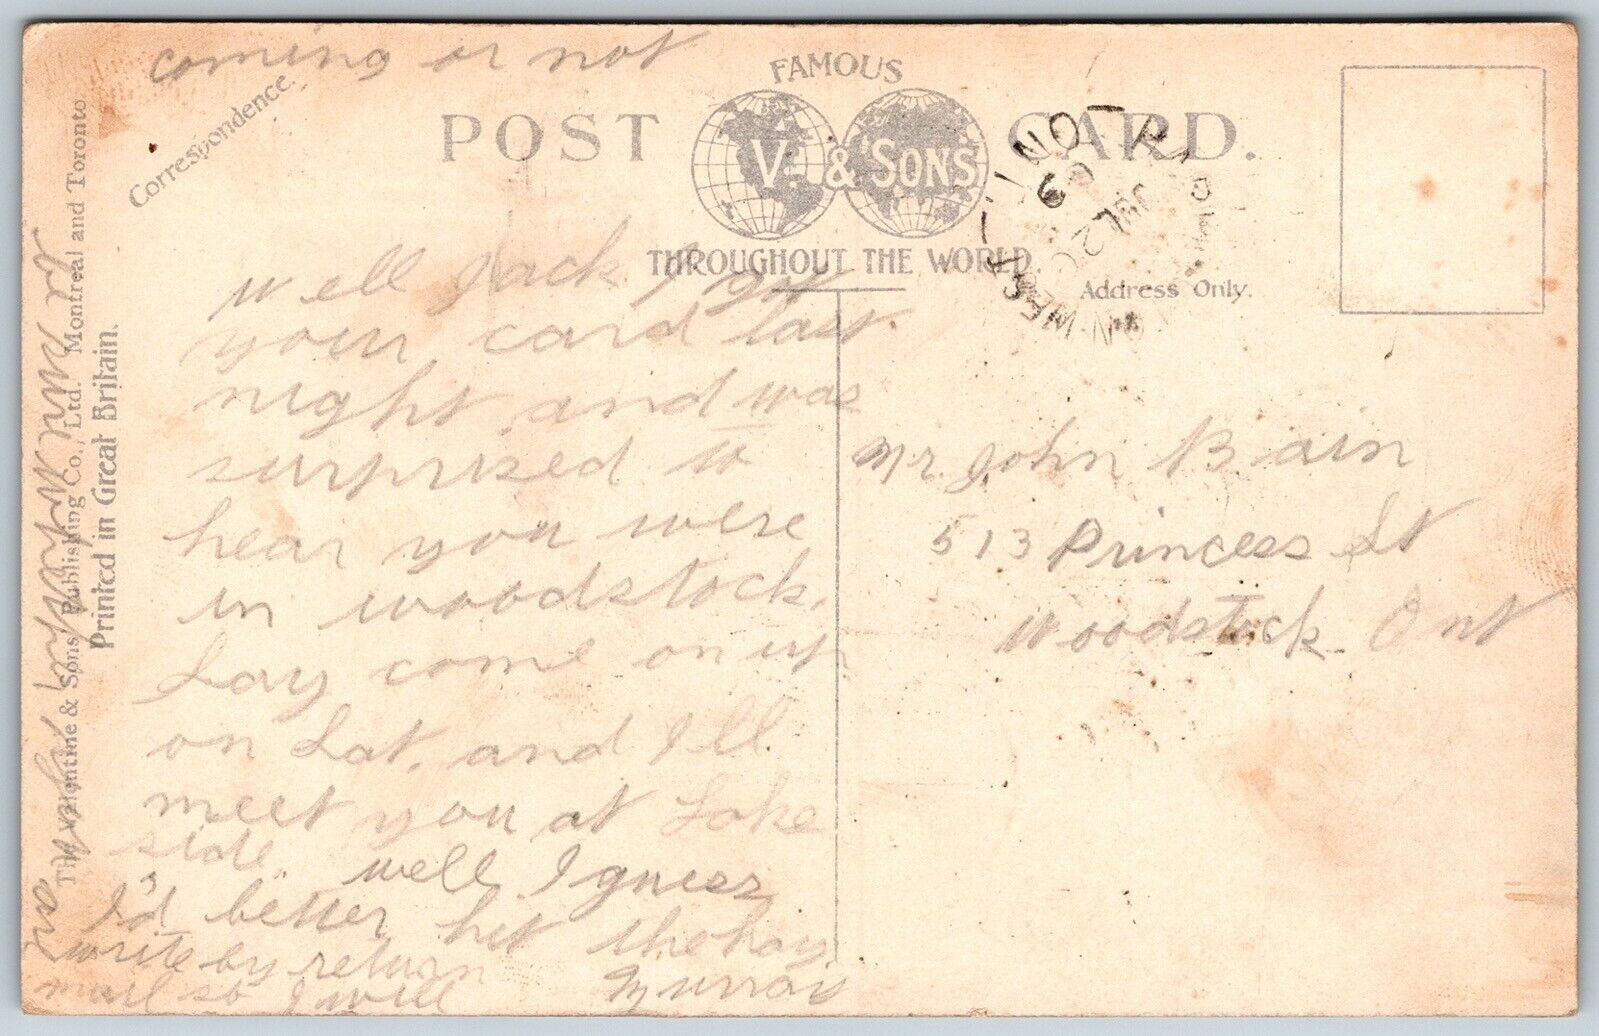 coming or not
Correspondence.
POST CARD.
FAMOUS
V. & SONS
THROUGHOUT THE WORLD.
Address Only.
JUL 2
09
Well Jack I got
your card last
night and was
surprised to
hear you were
in woodstock.
Say come on up
on Sat. and I'll
meet you at Lake
side. well I guess
I'd better hit the hay
write by return
mail so I will
Murray
are
Mr. John Bain
513 Princess St
Woodstock Ont
The Valentine & Sons Publishing Co., Ltd. Montreal and Toronto.
Printed in Great Britain.